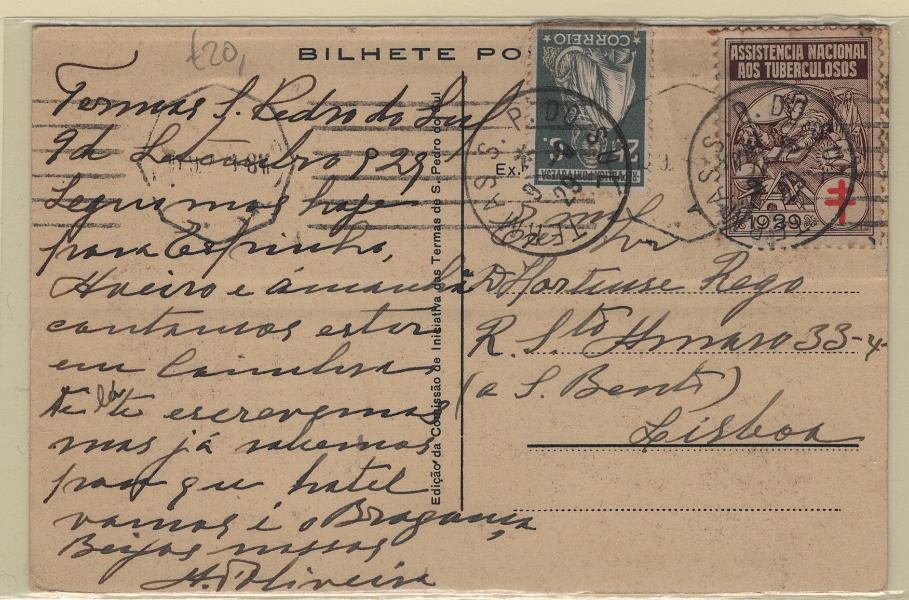 £20,
BILHETE PO
CORREIO
ASSISTENCIA NACIONAL
AOS TUBERCULOSOS
1929
Ex.
Termas S. Pedro do Sul
9 de Setembro 929
Seguimos hoje
para Espinho,
Aveiro e ámanhã
contamos estar
em Coimbra.
De lá te escrevemos
mas já sabemos
para que hotel
vamos é o Bragança
Beijos nossos
H. d'Oliveira
Edição da Comissão de Iniciativa das Termas de S. Pedro do Sul
D. Hortense Rego
R. Sto Amaro 33-4-
(a S. Bento)
Lisboa